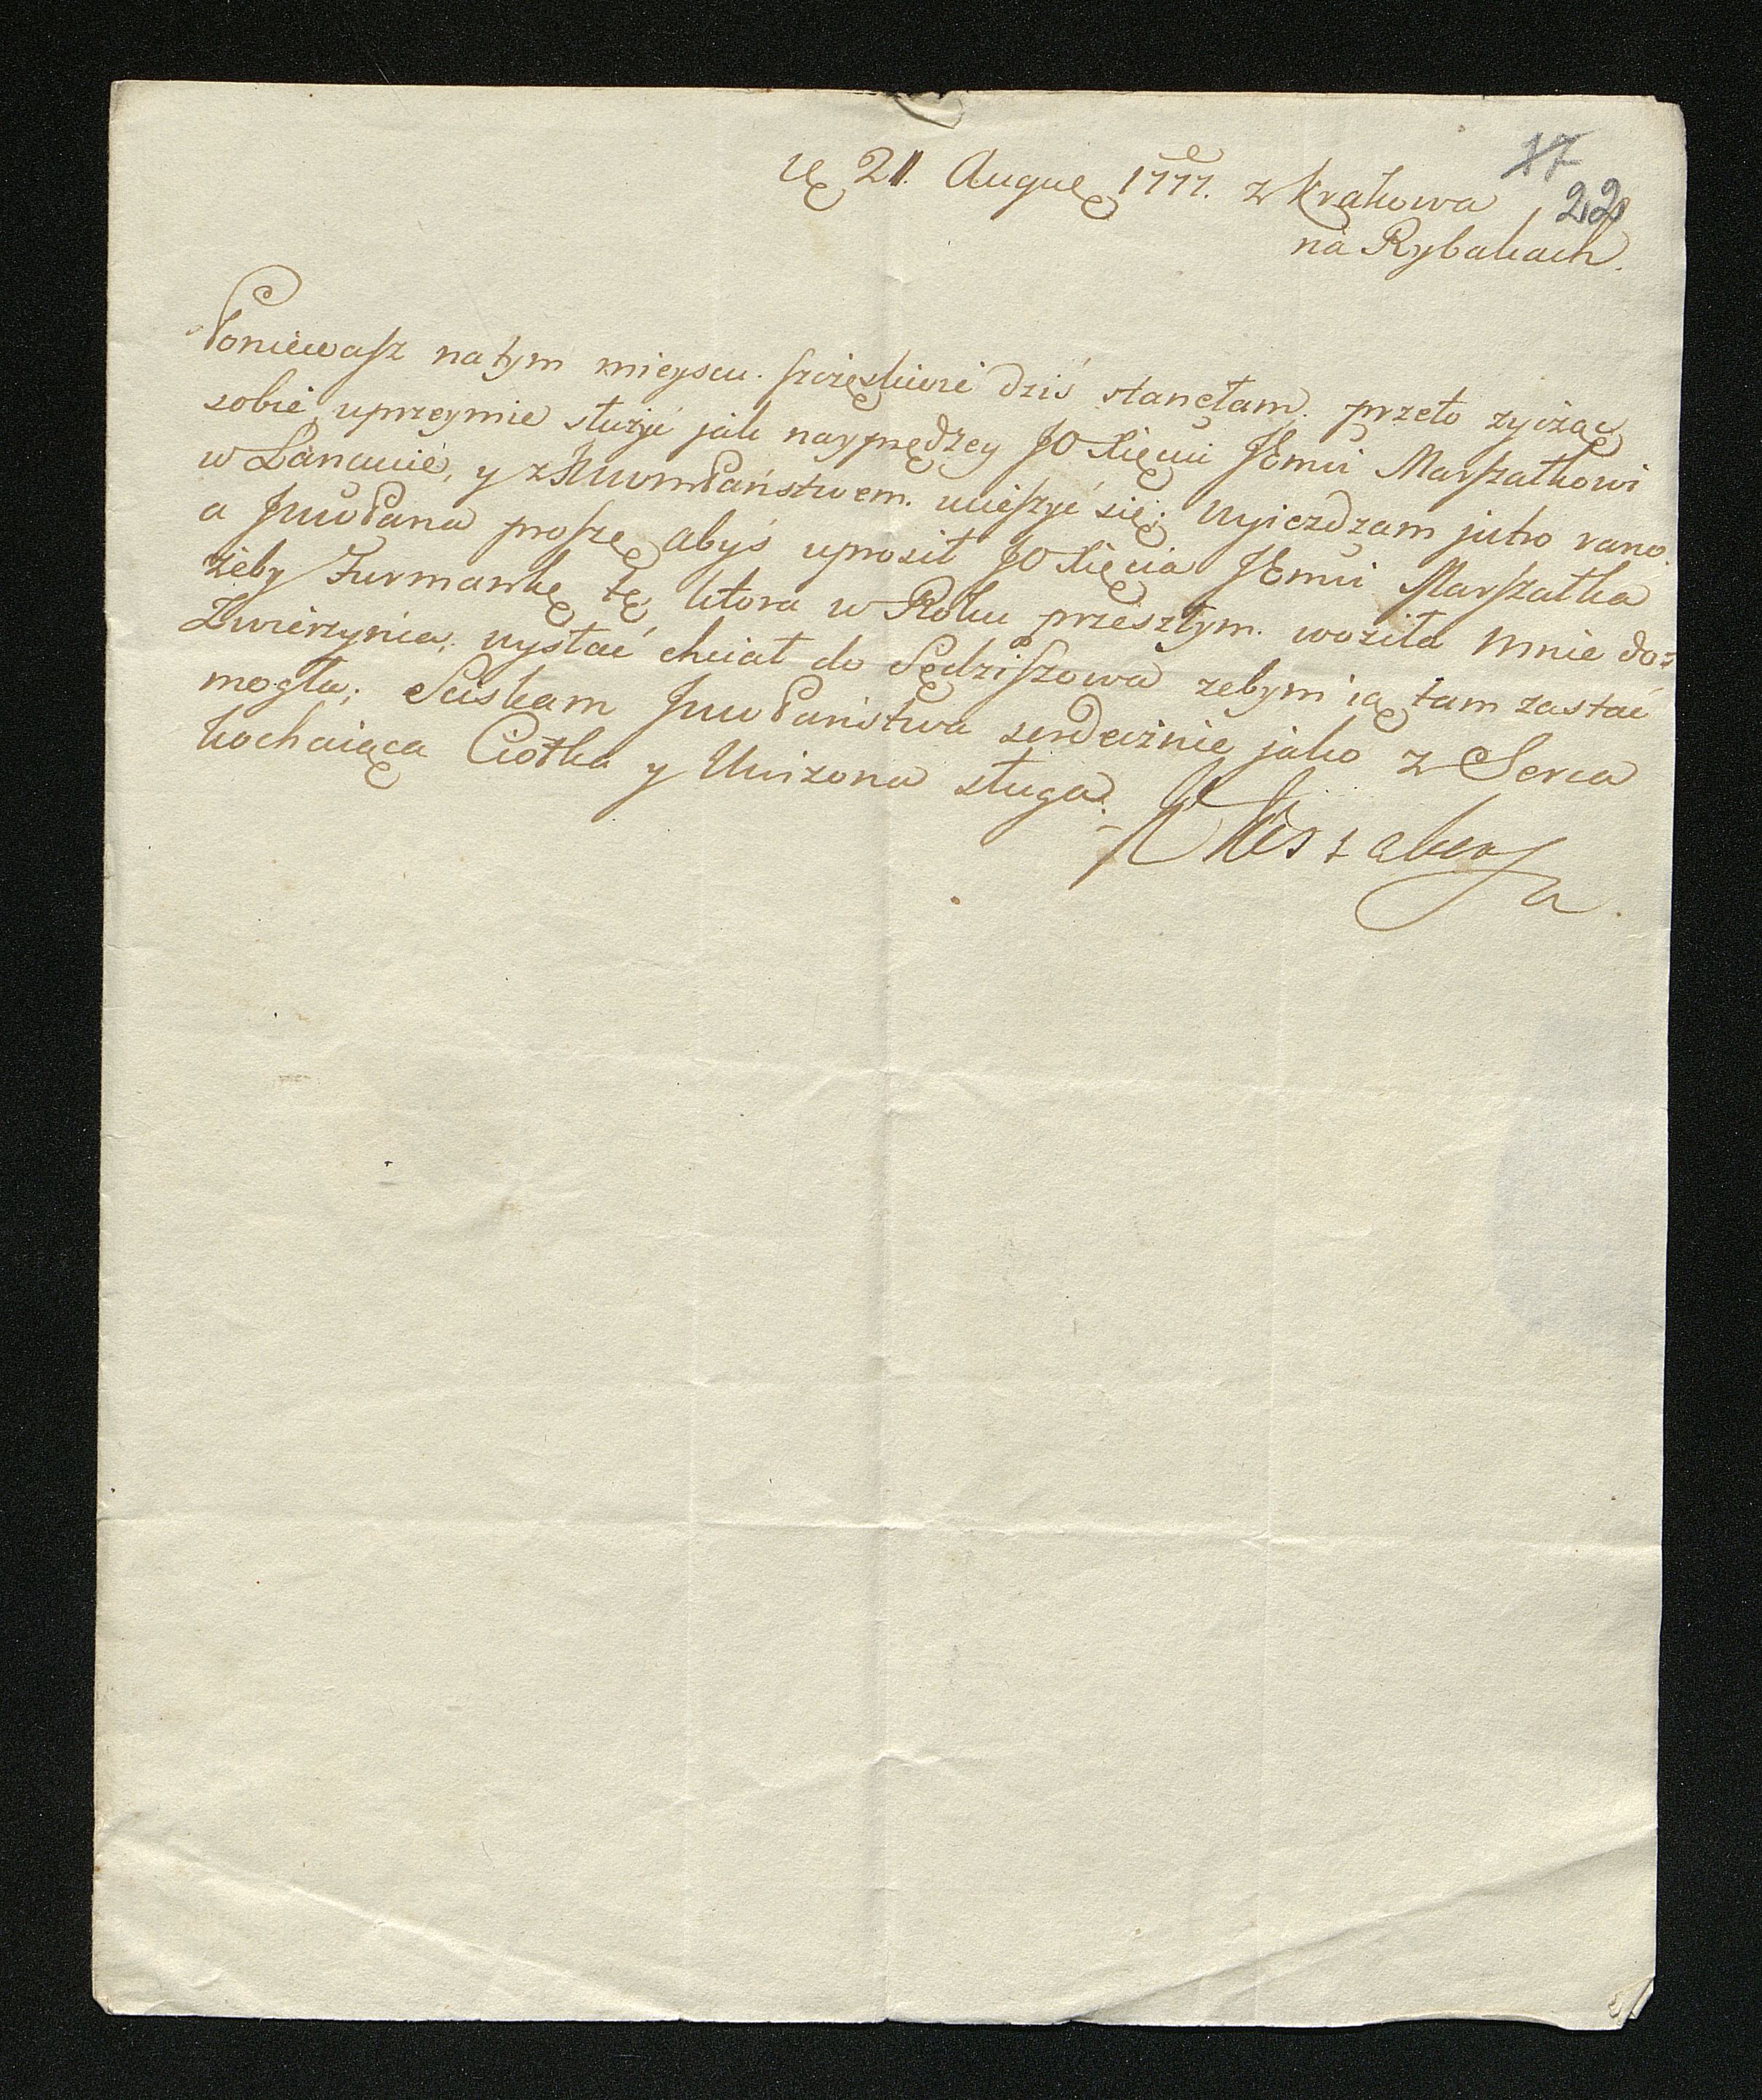 17
22
21. Augue 1777. z Krakowa
na Rybakach.
Poniewasz na tym mieyscu szczęsliwie dziś stanęłam. przeto zycząc
sobie uprzeymie służyć jak nayprędzey JO Xięciu JEmci Marszałkowi
w Łancucie, y z JmwmPaństwem. ucieszyć się; wyiezdzam jutro rano.
a JmwPana proszę abyś uprosił JO Xięcia JEmci Marszałka
żeby furmankę tę, ktora w Roku przeszłym. woziła mnie do=
Zwierzynca, wysłać chciał do Sędziszowa zebym ią tam zastać
mogła; Sciskam JmwPaństwa serdecznie jako z Serca
kochaiąca Ciotka y Unizona sługa.